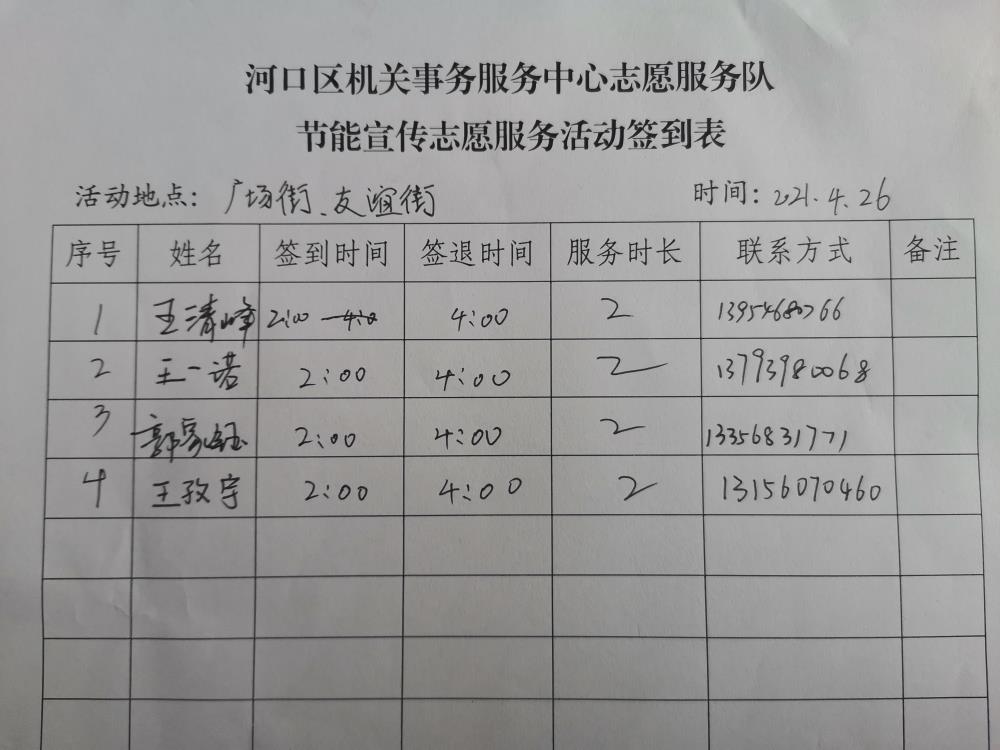 河口区机关事务服务中心志愿服务队
节能宣传志愿服务活动签到表
活动地点：广场街、友谊街 时间：2021.4.26
序号 姓名 签到时间 签退时间 服务时长 联系方式 备注
1 王清峰 2:00 4:00 4:00 2 13954680766
2 王一诺 2:00 4:00 2 13793980068
3 郭家钰 2:00 4:00 2 13356831771
4 王孜宇 2:00 4:00 2 13156070460